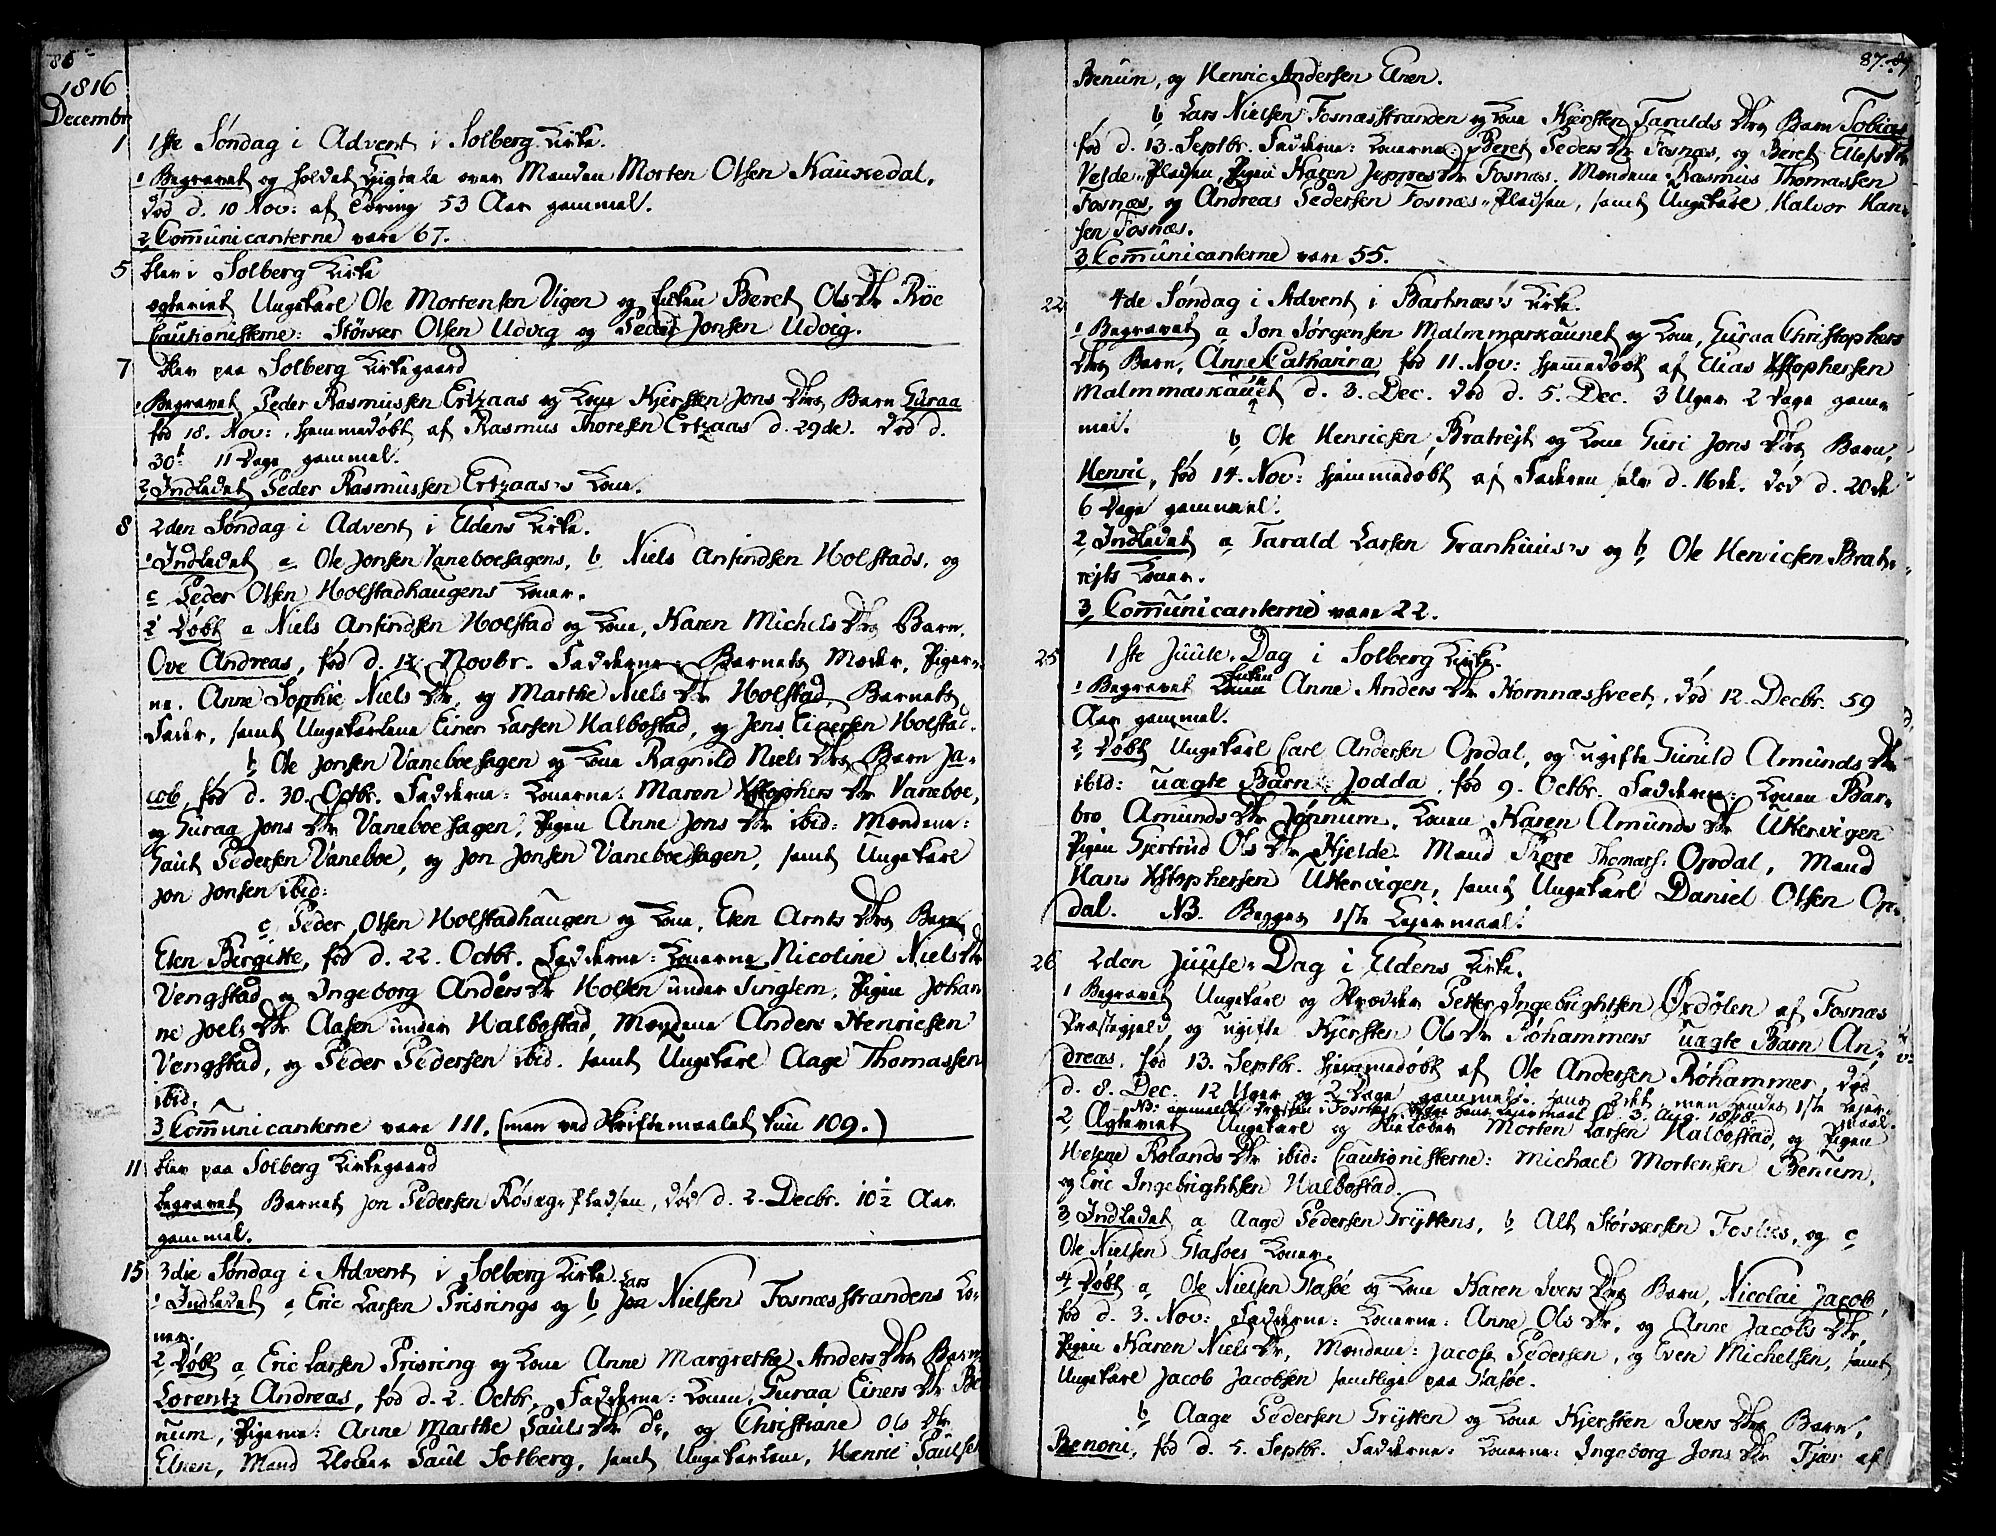 86
1816
Decembr
1 1ste Søndag i Advent i Solberg Kirke.
1 Begravet og holdet Ligtale over Manden Morten Olsen Kausxedal,
død d. 10 Nov: af Tæring 53 Aar gammel.
2 Com̃unicanterne vare 67.
5 blev i Solberg Kirke
egteviet Ungekarl Ole Mortensen Vigen og Enken Beret Ols Dr Røe
Cautionisterne: Størker Olsen Udvig og Peder Jonsen Udvig.
7 blev paa Solberg Kirkegaard
1 Begravet Peder Rasmussen Ertzaas og Kone Kjersten Jons Drs Barn Guraa
fød 18. Nov:, hjemmedøbt af Rasmus Thoresen Ertzaas d. 29de. død d.
30t 11 Dage gammel.
2 Indledet Peder Rasmussen Ertzaas's Kone.
8 2den Søndag i Advent i Eldens Kirke.
1 Indledet a Ole Jonsen Vaneboehagens, b Niels Anfindsen Holstads, og
c Peder Olsen Holstadhaugens Koner.
2 Døbt a Niels Anfindsen Holstad og Kone, Karen Michels Drs Barn,
Ove Andreas, fød d. 12 Novbr. Fadderne: Barnets Moder, Piger-
ne, Anne Sophie Niels Dr, og Marthe Niels Dr Holstad, Barnets
Fader, samt Ungekarlene Einer Larsen Halbostad, og Jens Einersen Holstad.
b Ole Jonsen Vaneboehagen og Kone Ragnild Niels Drs Barn Ja-
cob, fød d. 30. Octbr. Fadderne: Konerne: Maren Xstophers Dr Vaneboe,
og Guraa Jons Dr Vaneboehagen, Pigen Anne Jons Dr ibid: Mændene:
Gaut Pedersen Vaneboe, og Jon Jonsen Vaneboehagen, samt Ungekarl
Jon Jonsen ibid:
c Peder Olsen Holstadhaugen og Kone, Elen Arnts Drs Barn
Elen Birgitte, fød d. 22. Octbr. Fadderne: Konerne Nicoline Niels Dr
Vengstad, og Ingeborg Anders Dr Holsen under Tinglem, Pigen Johan
ne Joels Dr Aasen under Halbostad, Mændene Anders Henricsen
Vengstad, og Peder Pedersen ibid. samt Ungekarl Aage Thomassen
ibid.
3 Com̃unicanterne vare 111. (men ved Skriftemaalet kun 109.)
11 blev paa Solberg Kirkegaard
begravet Barnet Jon Pedersen Røseg-Pladsen, død d. 2. Decbr. 10½ Aar
gammel.
15 3die Søndag i Advent i Solberg Kirke.
1 Indledet a Eric Larsen Prisrings og b Lars Nielsen Fosnæsstrandens Ko-
ner.
2 Døbt a Eric Larsen Prisring og Kone Anne Margrethe Anders Drs Barn
Lorentz Andreas, fød d. 2. Octbr, Fadderne: Konen, Guraa Einers Dr Be
num, Pigerne: Anne Marthe Pauls Dr do, og Christiane Ols Dr
Elnen, Mand Klocker Paul Solberg, samt Ungekarlene, Henric Paulsen
87.
Benum, og Henric Andersen Elnen.
b Lars Nielsen Fosnæsstranden og Kone Kjersten Taralds Drs Barn Tobias
fød d. 13. Septbr. Fadderne: Konerne: Beret Peders Dr Fosnæs, og Beret Ellefs Dr
Velde-Pladsen, Pigen Karen Jeppes Dr Fosnæs. Mændene Rasmus Thomassen
Fosnæs, og Andreas Pedersen Fosnæs-Pladsen, samt Ungekarl, Halvor Han-
sen Fosnæs.
3 Com̃unicanterne vare 55.
22 4de Søndag i Advent i Bartnæs's Kirke.
1 Begravet a Jon Jørgensen Malmmarkaunet og Kone, Guraa Christophers
Drs Barn, Anne Catharina, fød 11. Nov: hjemmedøbt af Elias Xstophersen
Malmmarkaunet d. 3. Dec. død d. 5. Dec. 3 Uger 2 Dage gam-
mel.
b Ole Henricsen Bratrejt og Kone Guri Jons Drs Barn,
Henric, fød 14. Nov: hjemmedøbt af Faderen selv d. 16de. død d. 20de
6 Dage gammel.
2 Indledet a Tarald Larsen Granhuus's og b Ole Henricsen Brat-
rejts Koner.
3 Com̃unicanterne vare 22.
25 1ste Juule-Dag i Solberg Kirke.
1 Begravet Enken Anne Anders Dr Hornnæsfeet, død 12. Decbr. 59
Aar gammel.
2 Døbt Ungekarl Carl Andersen Opdal, og ugifte Gunild Amunds Dr
ibid: uægte Barn: Jodda, fød 9. Octbr. Fadderne: Konen Bar-
bro Amunds Dr Jønnum. Konen Karen Amunds Dr Uttervigen
Pigen Gjertrud Ols Dr Hjelde. Mand Thore Thomass. Opdal, Mand
Hans Xstophersen Uttervigen, samt Ungekarl Daniel Olsen Op-
dal. NB. Begges 1ste Lejermaal.
26 2den Juule-Dag i Eldens Kirke.
1 Begravet Ungekarl og Skrædder Petter Ingebrightsen Ørdølen af Fosnæs
Præstegjeld og ugifte Kjersten Ols Dr Røhammers uægte Barn An-
dreas, fød 13. Septbr. hjemmedøbt af Ole Andersen Røhammer, død
d. 8. Dec. 12 Uger og 2 Dage gammel. hans 2det, men hendes 1ste Lejer-
maal.
NB: anmeldt Præsten i Fosnæs hans Lejermaal d. 3. Aug. 1818.
2 Ægteviet Ungekarl og Skieløber Morten Larsen Halbostad, og Pigen
Helene Rolands Dr ibid: Cautionisterne: Michael Mortensen Benum,
og Eric Ingebrightsen Halbostad.
3 Indledet a Aage Pedersen Gryttens, b Alt Størkersen Foslies, og c
Ole Nielsen Stasøes Koner.
4 Døbt a Ole Nielsen Stasøe og Kone Karen Ivers Drs Barn, Nicolai Jacob,
fød d. 3. Nov: Fadderne: Konerne: Anne Ols Dr, og Anne Jacobs Dr,
Pigen Karen Niels Dr, Mændene: Jacob Pedersen, og Even Michelsen, samt
Ungekarl Jacob Jacobsen samtlige paa Stasøe.
b Aage Pedersen Grytten og Kone Kjersten Ivers Drs Barn,
Benoni, fød d. 5. Septbr. Fadderne: Konerne: Ingeborg Jons Dr Fjær af